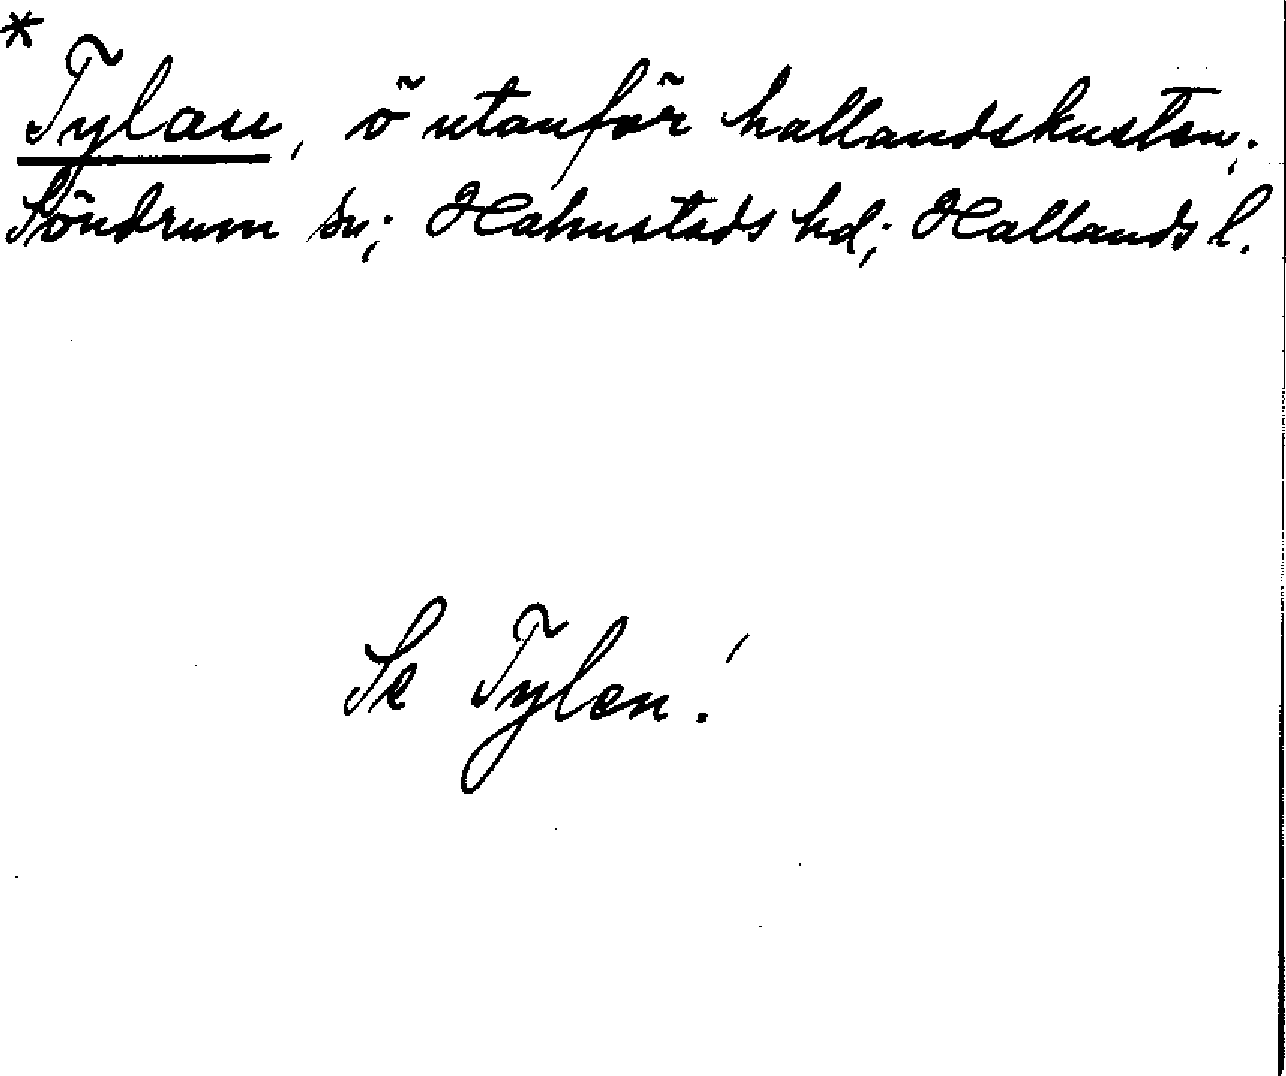 *
Tylan, ö utanför hallandskusten;
Söndrum sn; Halmstads hd; Hallands l.
Se Tylen!